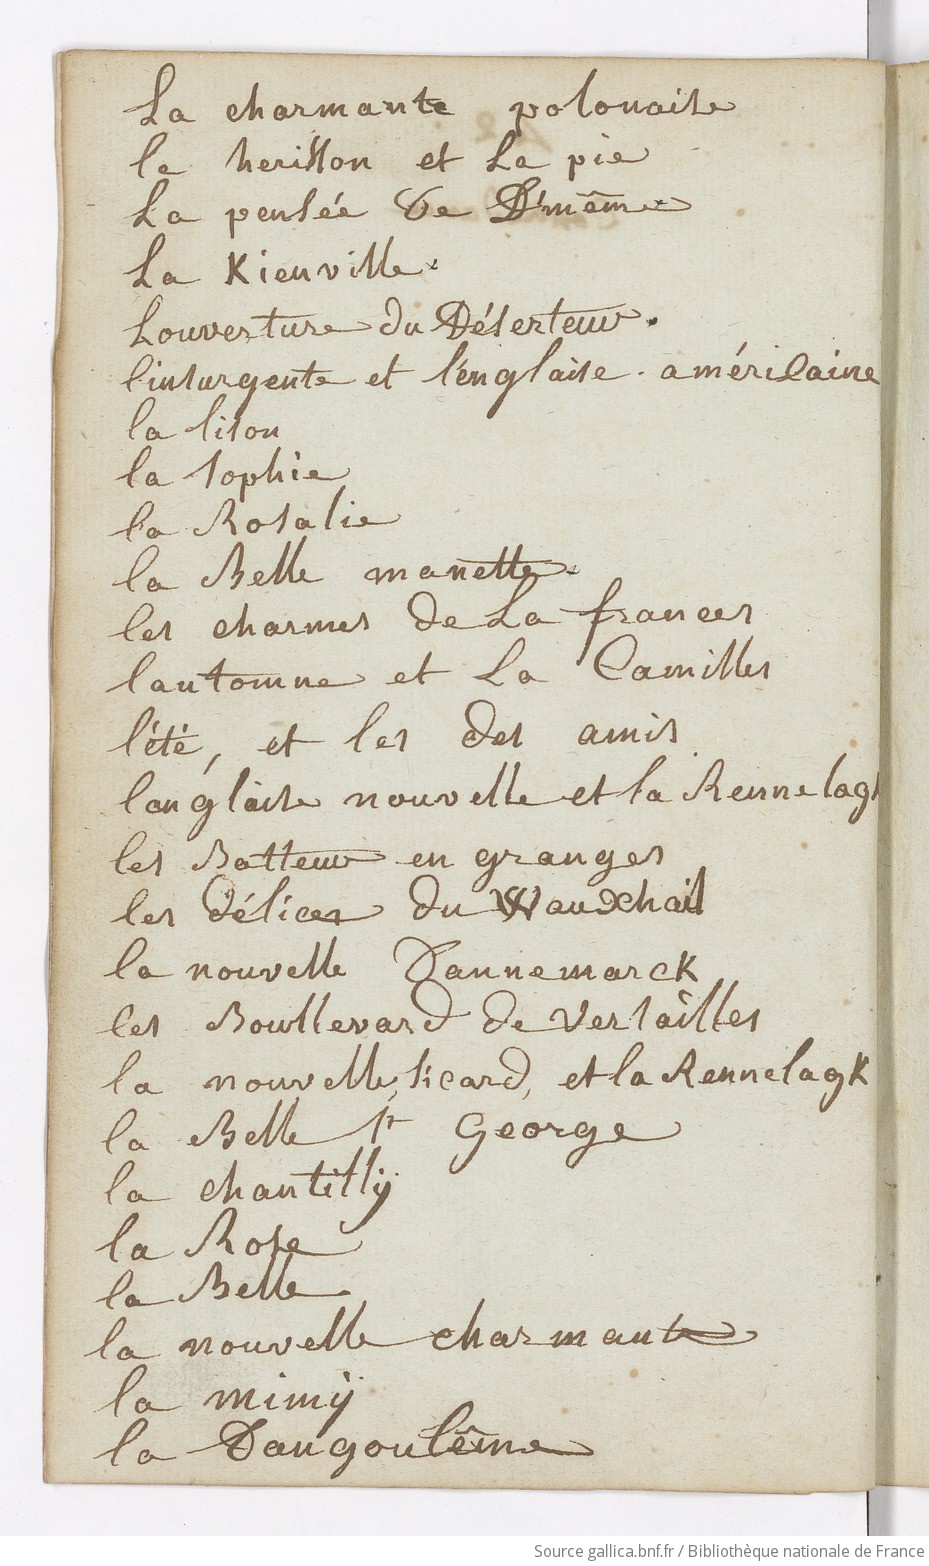 La charmante polonaise
le herisson et La pie
La pensée de D'même
La Kienville
Louverture du Déserteur.
linsurgente et l'englaise américaine
la lison
la sophie
la Rosalie
la Belle manette
les charmes de La frances
lautomne et La Camilles
l'été, et les des amis
langlaise nouvelle et la Rennelagk
les Batteur en granges
les délices du Wauxhail
la nouvelle Dannemarck
les Boullevard de Versailles
la nouvelle, sicard, et la Rennelagk
la Belle st George
la chantilly
la Rose
la Belle
la nouvelle charmante
la mimy
la Dangoulême
Source gallica.bnf.fr / Bibliothèque nationale de France